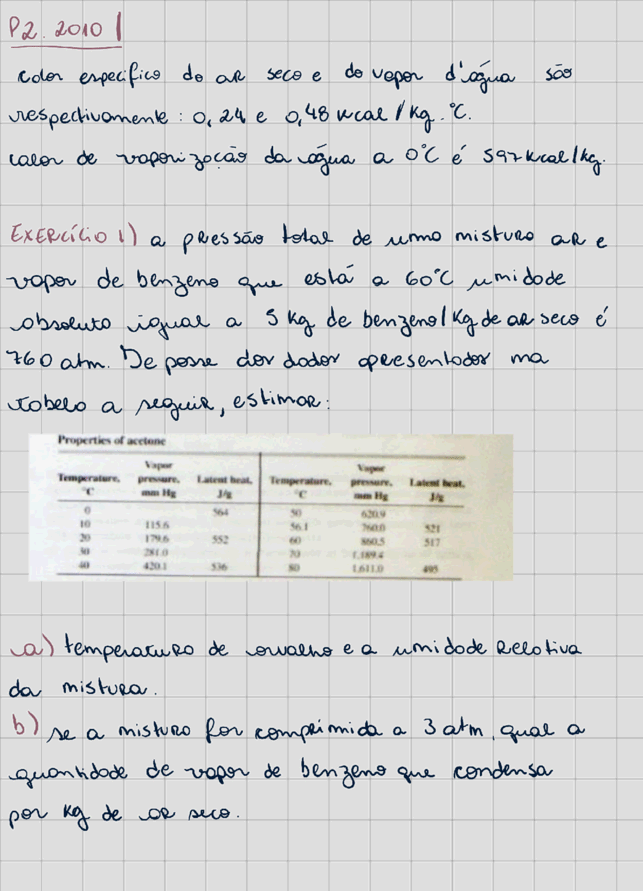 P2. 2010 |
calor especifico do ar seco e do vapor d'água são
respectivamente: 0,24 e 0,48 kcal/kg.°C.
calor de vaporização da água a 0°C é 597kcal/kg.
EXERCÍCIO 1) a pressão total de uma mistura ar e
vapor de benzeno que está a 60°C umidade
absoluta igual a 5 kg de benzeno/kg de ar seco é
760 atm. De posse dos dados apresentados na
tabela a seguir, estimar:
Properties of acetone
Temperature, °C Vapor pressure, mm Hg Latent heat, J/g Temperature, °C Vapor pressure, mm Hg Latent heat, J/g
0 564 50 620.9
10 115.6 56.1 760.0 521
20 179.6 552 60 860.5 517
30 281.0 70 1,189.4
40 420.1 536 80 1,611.0 495
a) temperatura de orvalho e a umidade relativa
da mistura.
b) se a mistura for comprimida a 3 atm, qual a
quantidade de vapor de benzeno que condensa
por kg de ar seco.